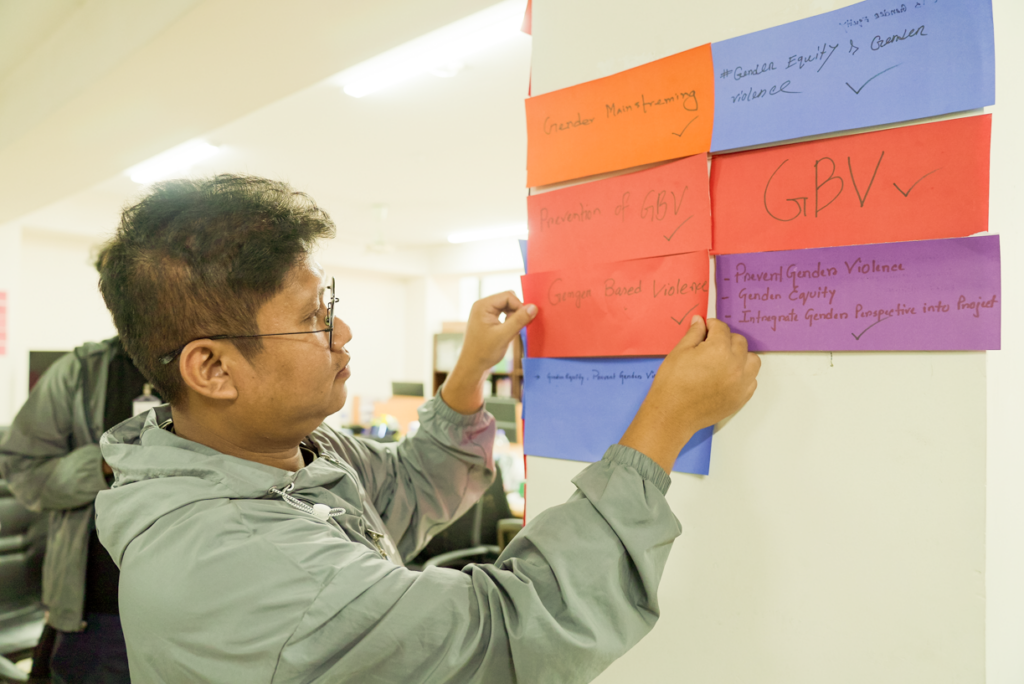 Gender Mainstreming
in Gender Equity
#Gender Equity & Gender
violence
Prevention of GBV
GBV
Gender Based Violence
- Prevent Gender Violence
- Gender Equity
- Intregrate Gender Perspective into Project
→ Gender Equality, Prevent Gender